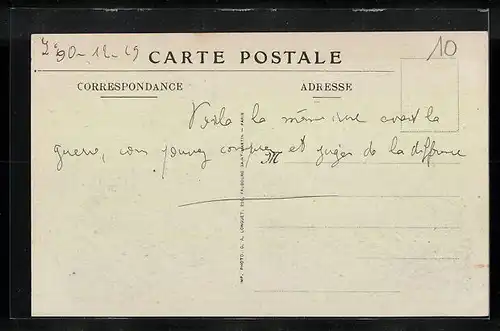 90-12-19
10
CARTE POSTALE
CORRESPONDANCE
ADRESSE
Voila la même rue avant la
guerre, vous pouvez comparer et juger de la différence
M
IMP. PHOTO. D. A. LONGUET, 250, FAUBOURG SAINT-MARTIN - PARIS